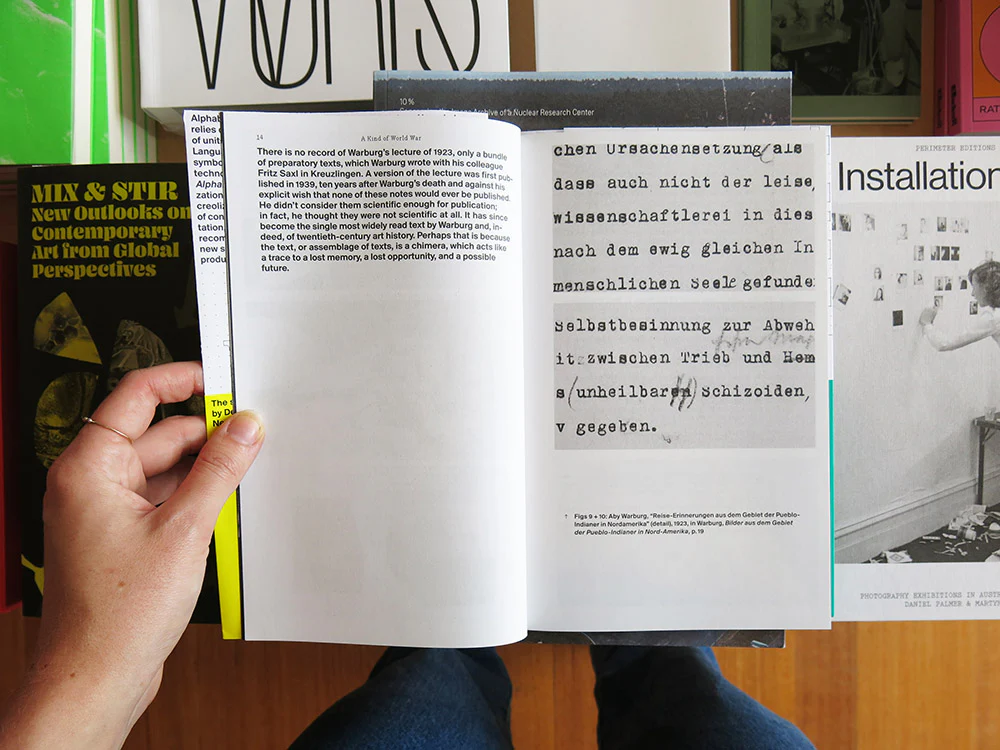 10%
Archive of a Nuclear Research Center
Alphab
relies
of unit
Langu
symbo
techno
Alpha
zation
creoli
of con
tation
recom
new s
produ
MIX & STIR
New Outlooks on
Contemporary
Art from Global
Perspectives
The s
by De
14
A Kind of World War
There is no record of Warburg's lecture of 1923, only a bundle
of preparatory texts, which Warburg wrote with his colleague
Fritz Saxl in Kreuzlingen. A version of the lecture was first pub-
lished in 1939, ten years after Warburg's death and against his
explicit wish that none of these notes would ever be published.
He didn't consider them scientific enough for publication;
in fact, he thought they were not scientific at all. It has since
become the single most widely read text by Warburg and, in-
deed, of twentieth-century art history. Perhaps that is because
the text, or assemblage of texts, is a chimera, which acts like
a trace to a lost memory, a lost opportunity, and a possible
future.
chen Ursachensetzung als
dass auch nicht der leise,
wissenschaftlerei in dies
nach dem ewig gleichen In
menschlichen Seele gefunde
Selbstbesinnung zur Abweh
it zwischen Trieb und Hem
s (unheilbaren) Schizoiden,
v gegeben.
↑ Figs 9 + 10: Aby Warburg, "Reise-Erinnerungen aus dem Gebiet der Pueblo-
Indianer in Nordamerika" (detail), 1923, in Warburg, Bilder aus dem Gebiet
der Pueblo-Indianer in Nord-Amerika, p. 19
PERIMETER EDITIONS
Installation
PHOTOGRAPHY EXHIBITIONS IN AUSTR
DANIEL PALMER & MARTYN
RAT